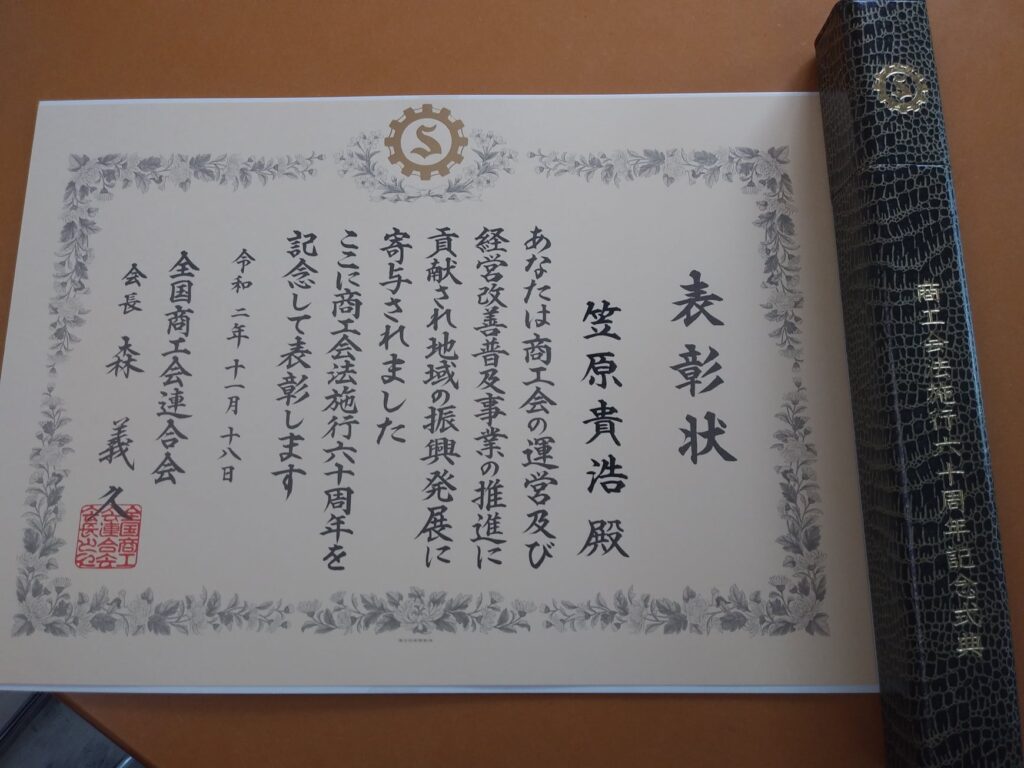 表彰状
笠原貴浩 殿
あなたは商工会の運営及び
経営改善普及事業の推進に
貢献され地域の振興発展に
寄与されました
ここに商工会法施行六十周年を
記念して表彰します
令和二年十一月十八日
全国商工会連合会
会長 森 義久
全国商工
会連合会
会長之印
S
商工会法施行六十周年記念式典